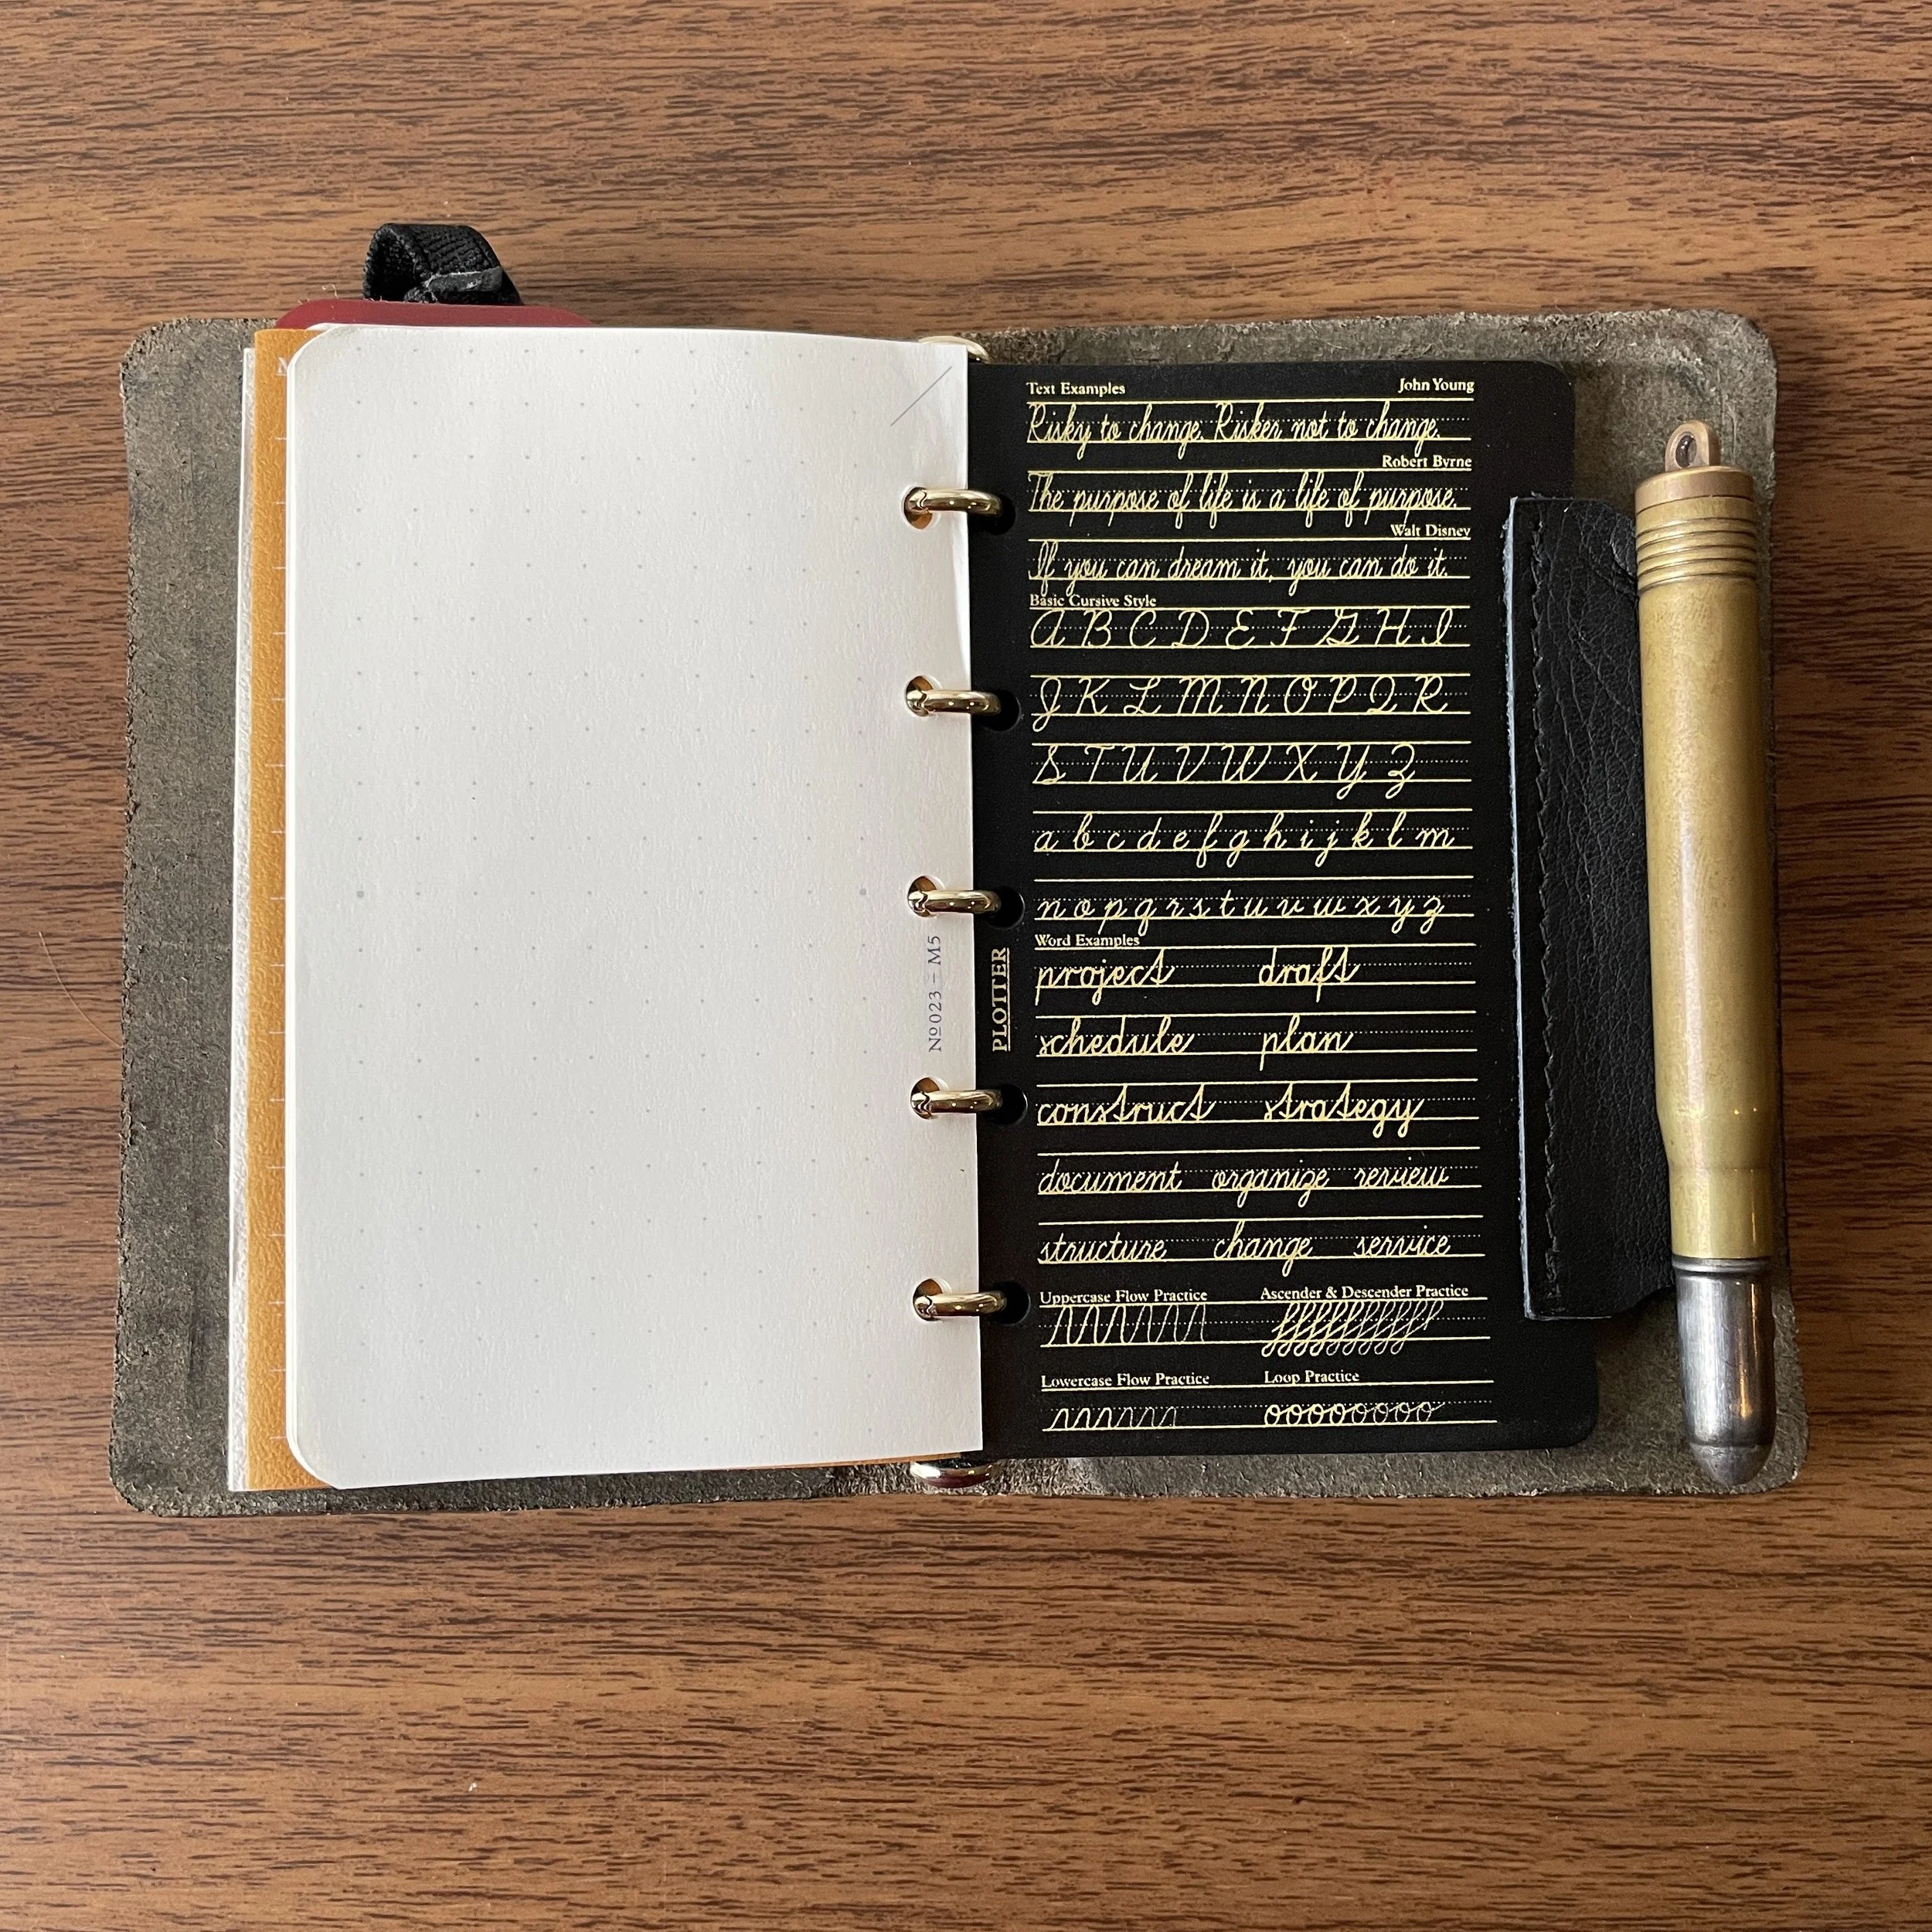 No023 – M5
PLOTTER
Text Examples John Young
Risky to change. Risker not to change.
Robert Byrne
The purpose of life is a life of purpose.
Walt Disney
If you can dream it, you can do it.
Basic Cursive Style
A B C D E F G H I
J K L M N O P Q R
S T U V W X Y Z
a b c d e f g h i j k l m
n o p q r s t u v w x y z
Word Examples
project draft
schedule plan
construct strategy
document organize review
structure change service
Uppercase Flow Practice Ascender & Descender Practice
Lowercase Flow Practice Loop Practice